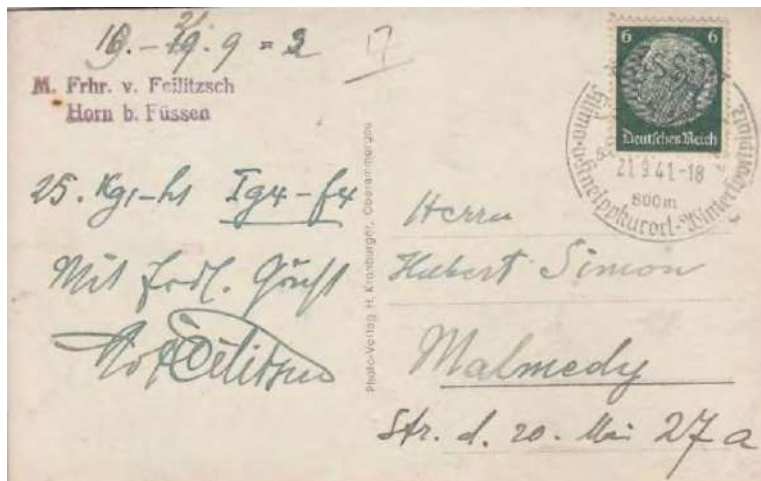 19. - 21. 9 = 3 17
M. Frhr. v. Feilitzsch
Horn b. Füssen
25. Kg1-h1 Tg4-f4
Mit frdl. Gruß
Photo-Verlag H. Kronburger, Oberammergau
6 6
Deutsches Reich
FÜSSEN
21.9.41-18
800 m
Kneippkurort-Wintersportplatz
Herrn
Hubert Simon
Malmedy
Str. d. 20. Mai 27a